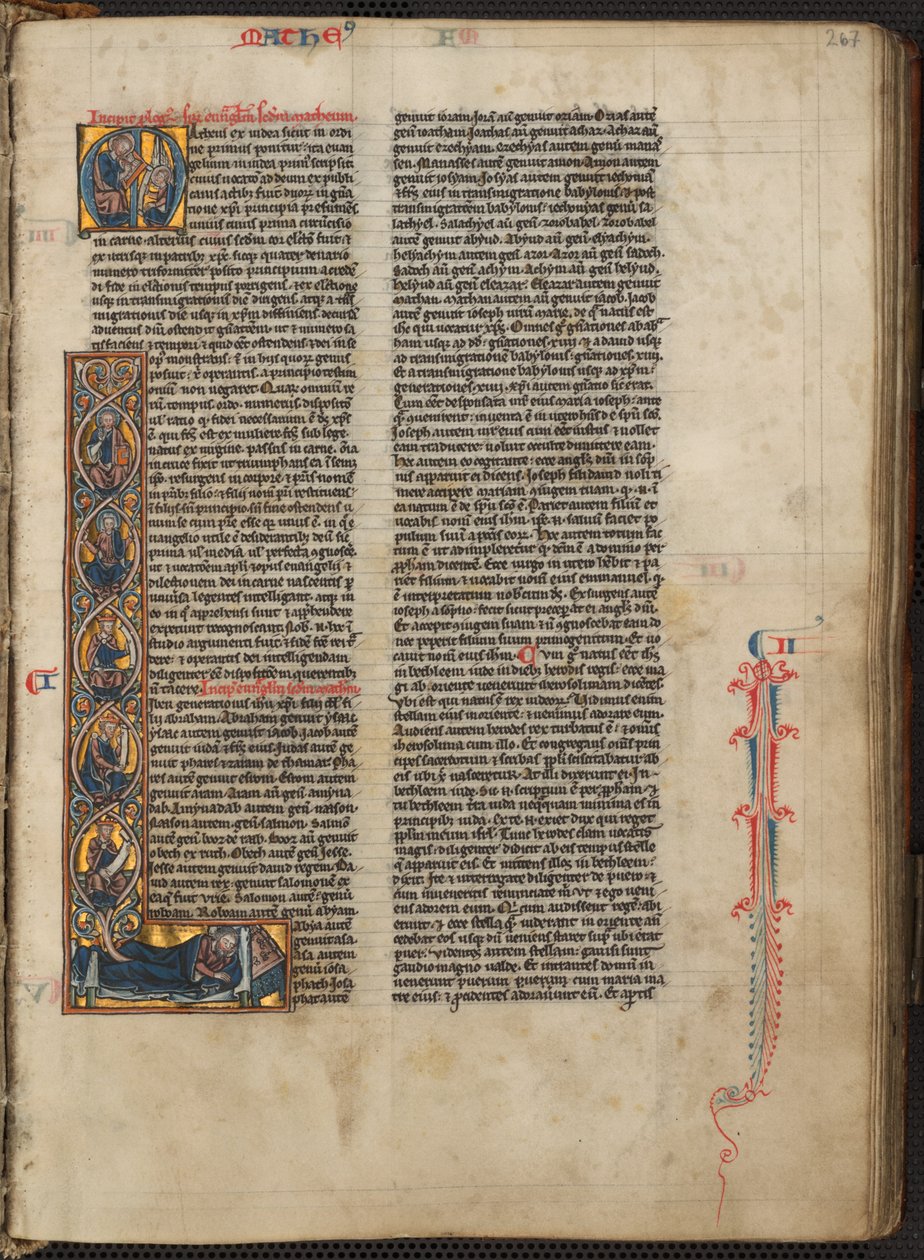 MATHE9
267
Incipit plog9 sup euuãgliũ scdm matheum
Matheus ex iudea sicut in ordi
ne primus ponitur: ita euan
gelium in iudea prim9 scripsit.
cuius uocatio ad deum ex publi
canis actib; fuit. duorũ in gña
tione xp̃i principia presumẽs.
unius cuius prima circũcisio
in carne. alterius cuius scdm cor elctõ fuit. &
ex utrisq; in patrib; xp̃c. sicq; quater denario
numero triformiter posito principium a credẽ
di fide in elctionis tempus porrigens. & ex elctione
usq; in transmigrationis diẽ dirigens. atq; a tñs
migrationis die usq; in xp̃m diffiniens. decursã
aduentus dñi ostendit gñationẽ. ut & numero sa
tisfaciens & tempori & quid eẽt ostendens & dei in se
op9 monstrans. & in hiis quorũ genus
posuit. xp̃i operantis. a principio testim
oniũ non negaret. Quarũ omniũ re
rũ tempus. ordo. numerus. dispositio
ul' ratio q̃ fidei necessarium ẽ ds xp̃s
ẽ. qui fc̃s est ex muliere. fc̃s sub lege.
natus ex uirgine. passus in carne. õia
in cruce fixit ut triumphans ea ĩ semet
ipso. resurgens in corpore. & pr̃is nomẽ
in pr̃ib; filio. & filii nom̃ pr̃i restituens
ĩ filiis. sñ principio. sñ fine ostendens u
num se cum pr̃e esse. quia unus ẽ. in q̃ e
uangelio utile ẽ desiderantib; dm̃ sic
prima ul' media ul' perfecta cognoscẽ.
ut & uocatõem apl̃i & opus euangelii &
dilectionem dei in carne nascentis p
uniuersa legentes intelligant. atq; in
eo in q̃ apprehensi sunt & apprehendere
expetunt recognoscant. Nob. n. hoc ĩ
studio argumenti fuit. & fidẽ fc̃e rei tra
dere. & operantis dei intelligendam
diligenter eẽ dispositiõem querentib;
ñ tacere. Incip̃ euuñgliũ scdm mathm
Liber generationis ihu xp̃i filii dd. fi
lii abraham. Abraham genuit ysaac.
ysaac autem genuit iacob. Iacob autẽ
genuit iudã & frẽs eius. Iudas autẽ ge
nuit phares & zaram de thamar. Pha
res autẽ genuit esrom. Esrom autem
genuit aram. Aram aũ genũ amyna
dab. Amynadab autem genũ naason.
Naason autem genũ salmon. Salmõ
autẽ genũ booz de raab. Booz aũ genuit
obeth ex ruth. Obeth autẽ genũ Iesse.
Iesse autem genuit dauid regem. Da
uid autem rex genuit salomonẽ ex
ea que fuit vrie. Salomon autẽ genũ
roboam. Roboam autẽ genũ abyam.
Abya autẽ
genuit asa.
asa autem
genũ iosa
phath. Iosa
phat autẽ
I
genuit ioram. Iorã aũ genuit oziam. Ozias autẽ
genũ ioatham. Ioathas aũ genuit achaz. Achaz aũ
genuit ezechyam. ezechyas autem genũ mana
sen. Manasses autẽ genuit amon. Amon autem
genuit iosyam. Iosyas autem genuit iechoniã
& frẽs eius in transmigratione babylonis. & post
transmigratiõem babylonis: iechonyas genũ sa
lathyel. Salathyel aũ genũ zorobabel. Zorobabel
autẽ genuit abyud. Abyud aũ genũ elyachym.
helyachym autem genũ azor. Azor aũ genũ sadoch.
Sadoch aũ genũ achym. Achym aũ genũ helyud.
Helyud aũ genũ eleazar. Eleazar autem genuit
mathan. Mathan autem aũ genuit iacob. Iacob
autẽ genuit ioseph uirũ marie. de q̃ natus est
ihc qui uocatur xp̃c. Omnes g̃ gñationes ab abra
ham usq; ad dd: gñationes .xiiii. & a dauid usq;
ad transmigrationẽ babylonis: gñationes .xiiii.
Et a transmigratione babylonis usq; ad xp̃m:
generationes .xiiii. Xp̃i autem gñatio sic erat.
Cum eẽt desponsata mr̃ ei9 maria ioseph: ante
q̃ conuenirent: inuenta ẽ in utero hñs de sp̃u sc̃o.
Ioseph autem uir eius cum eẽt iustus & nollet
eam traducere: uoluit occulte dimittere eam.
Hec autem eo cogitante: ecce angl's dñi in sõp
nis apparuit ei dicens. Ioseph fili dauid noli ti
mere accipere mariam coniugem tuam. q. n. ĩ
ea natum ẽ de sp̃u sc̃o ẽ. Pariet autem filium et
uocabis nom̃ eius ihm. ipse. n. saluũ faciet po
pulum suũ a pctis eorũ. Hoc autem totum fac
tum ẽ ut adimpleretur q̃ dcm̃ ẽ a domino per
pp̃ham dicentẽ. Ecce uirgo in utero hẽbit & pa
riet filium: & uocabit nom̃ eius emmanuel. q̃
ẽ interpretatum nobiscum ds. Exsurgens autẽ
ioseph a sõpno: fecit sicut precepat ei angl's dñi.
Et accepit coniugem suam & ñ cognoscebat eam do
nec peperit filium suum primogenitum. Et uo
cauit nom̃ eius ihm. Cum g̃ natus eẽt ihc
in bethleem iude in dieb; herodis regis: ecce ma
gi ab oriente uenerunt iherosolimam dicẽtes.
Vbi est qui natus ẽ rex iudeorũ: Vidimus enim
stellam eius in oriente: & uenimus adorare eum.
Audiens autem herodes rex turbatus ẽ: & omnis
iherosolima cum illo. Et congregans om̃s prin
cipes sacerdotum & scribas pp̃li sciscitabatur ab
eis ubi xp̃c nasceretur. At illi dixerunt ei. In
bethleem iude. Sic. n. scriptum ẽ per pp̃ham. Et
tu bethleem tr̃a iuda nequaquam minima es in
principib; iuda. Ex te. n. exiet dux qui reget
pp̃lm meum isrl. Tunc herodes clam uocatis
magis: diligenter didicit ab eis tempus stelle
q̃ apparuit eis. Et mittens illos in bethleem:
dixit. Ite & interrogate diligenter de puero &
cum inueneritis renunciate m̃ ut & ego ueni
ens adorem eum. Qui cum audissent regẽ: abi
erunt. & ecce stella q̃ uiderant in oriente an
cedebat eos usq; dũ ueniens staret supra ubi erat
puer. videntes autem stellam: gauisi sunt
gaudio magno ualde. Et intrantes domũ in
uenerunt puerum puerum cum maria ma
tre eius: & procidentes adorauerunt eũ. Et apertis
II